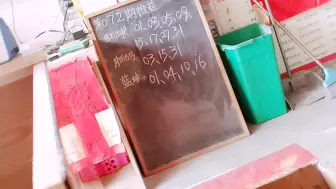 第072期推荐
红球:01.03.05.09.
15.17.27.31
03.15.31
蓝球:01.04.10.16